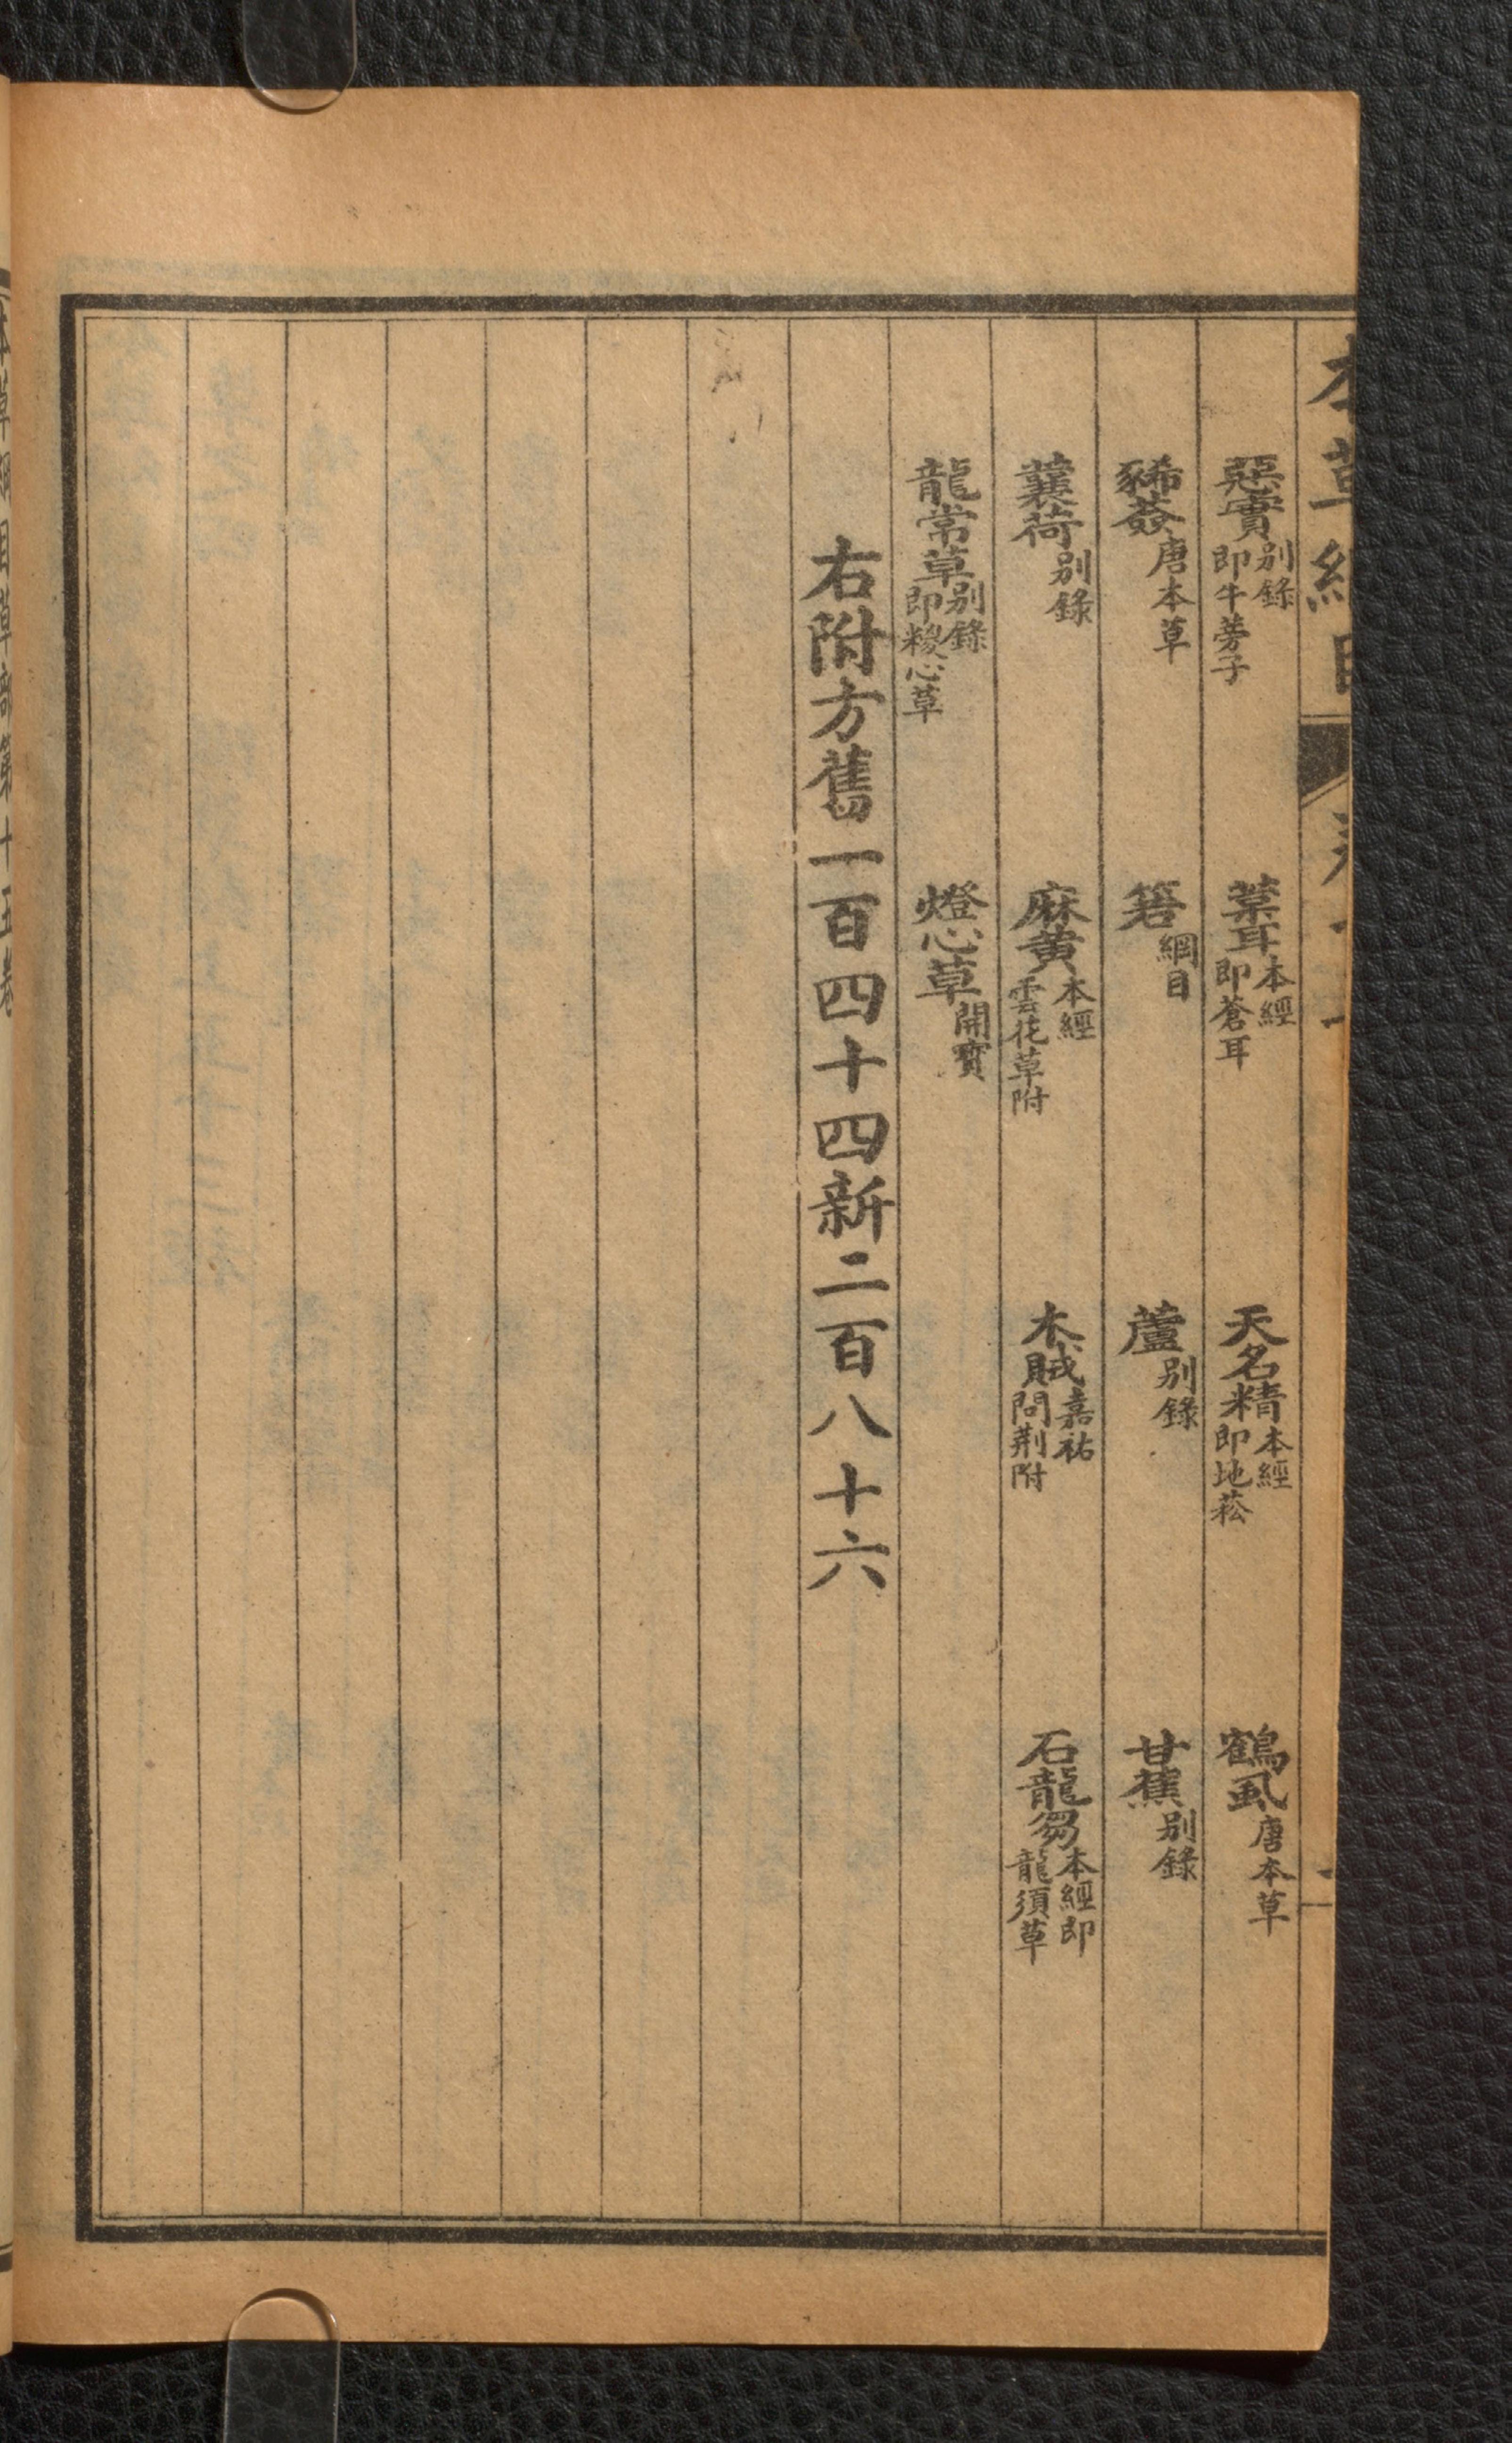 本草綱目
惡實別錄即牛蒡子 葈耳本經即蒼耳 天名精本經即地菘 鶴虱唐本草
豨薟唐本草 箬綱目 蘆別錄 甘蕉別錄
蘘荷別錄 麻黃本經雲花草附 木賊嘉祐問荆附 石龍芻本經即龍須草
龍常草別錄即糉心草 燈心草開寶
右附方舊一百四十四新二百八十六
本草綱目草部第十五卷